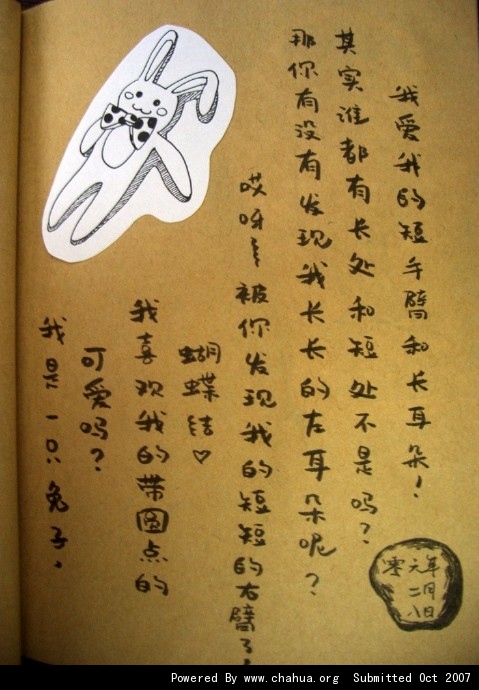 我是一只兔子。
可爱吗？
我喜欢我的带圆点的
蝴蝶结♡
哎呀~被你发现我的短短的右臂了！
那你有没有发现我长长的左耳朵呢？
其实谁都有长处和短处不是吗？
我爱我的短手臂和长耳朵！
零元年
二月
八日
Powered By www.chahua.org Submitted Oct 2007